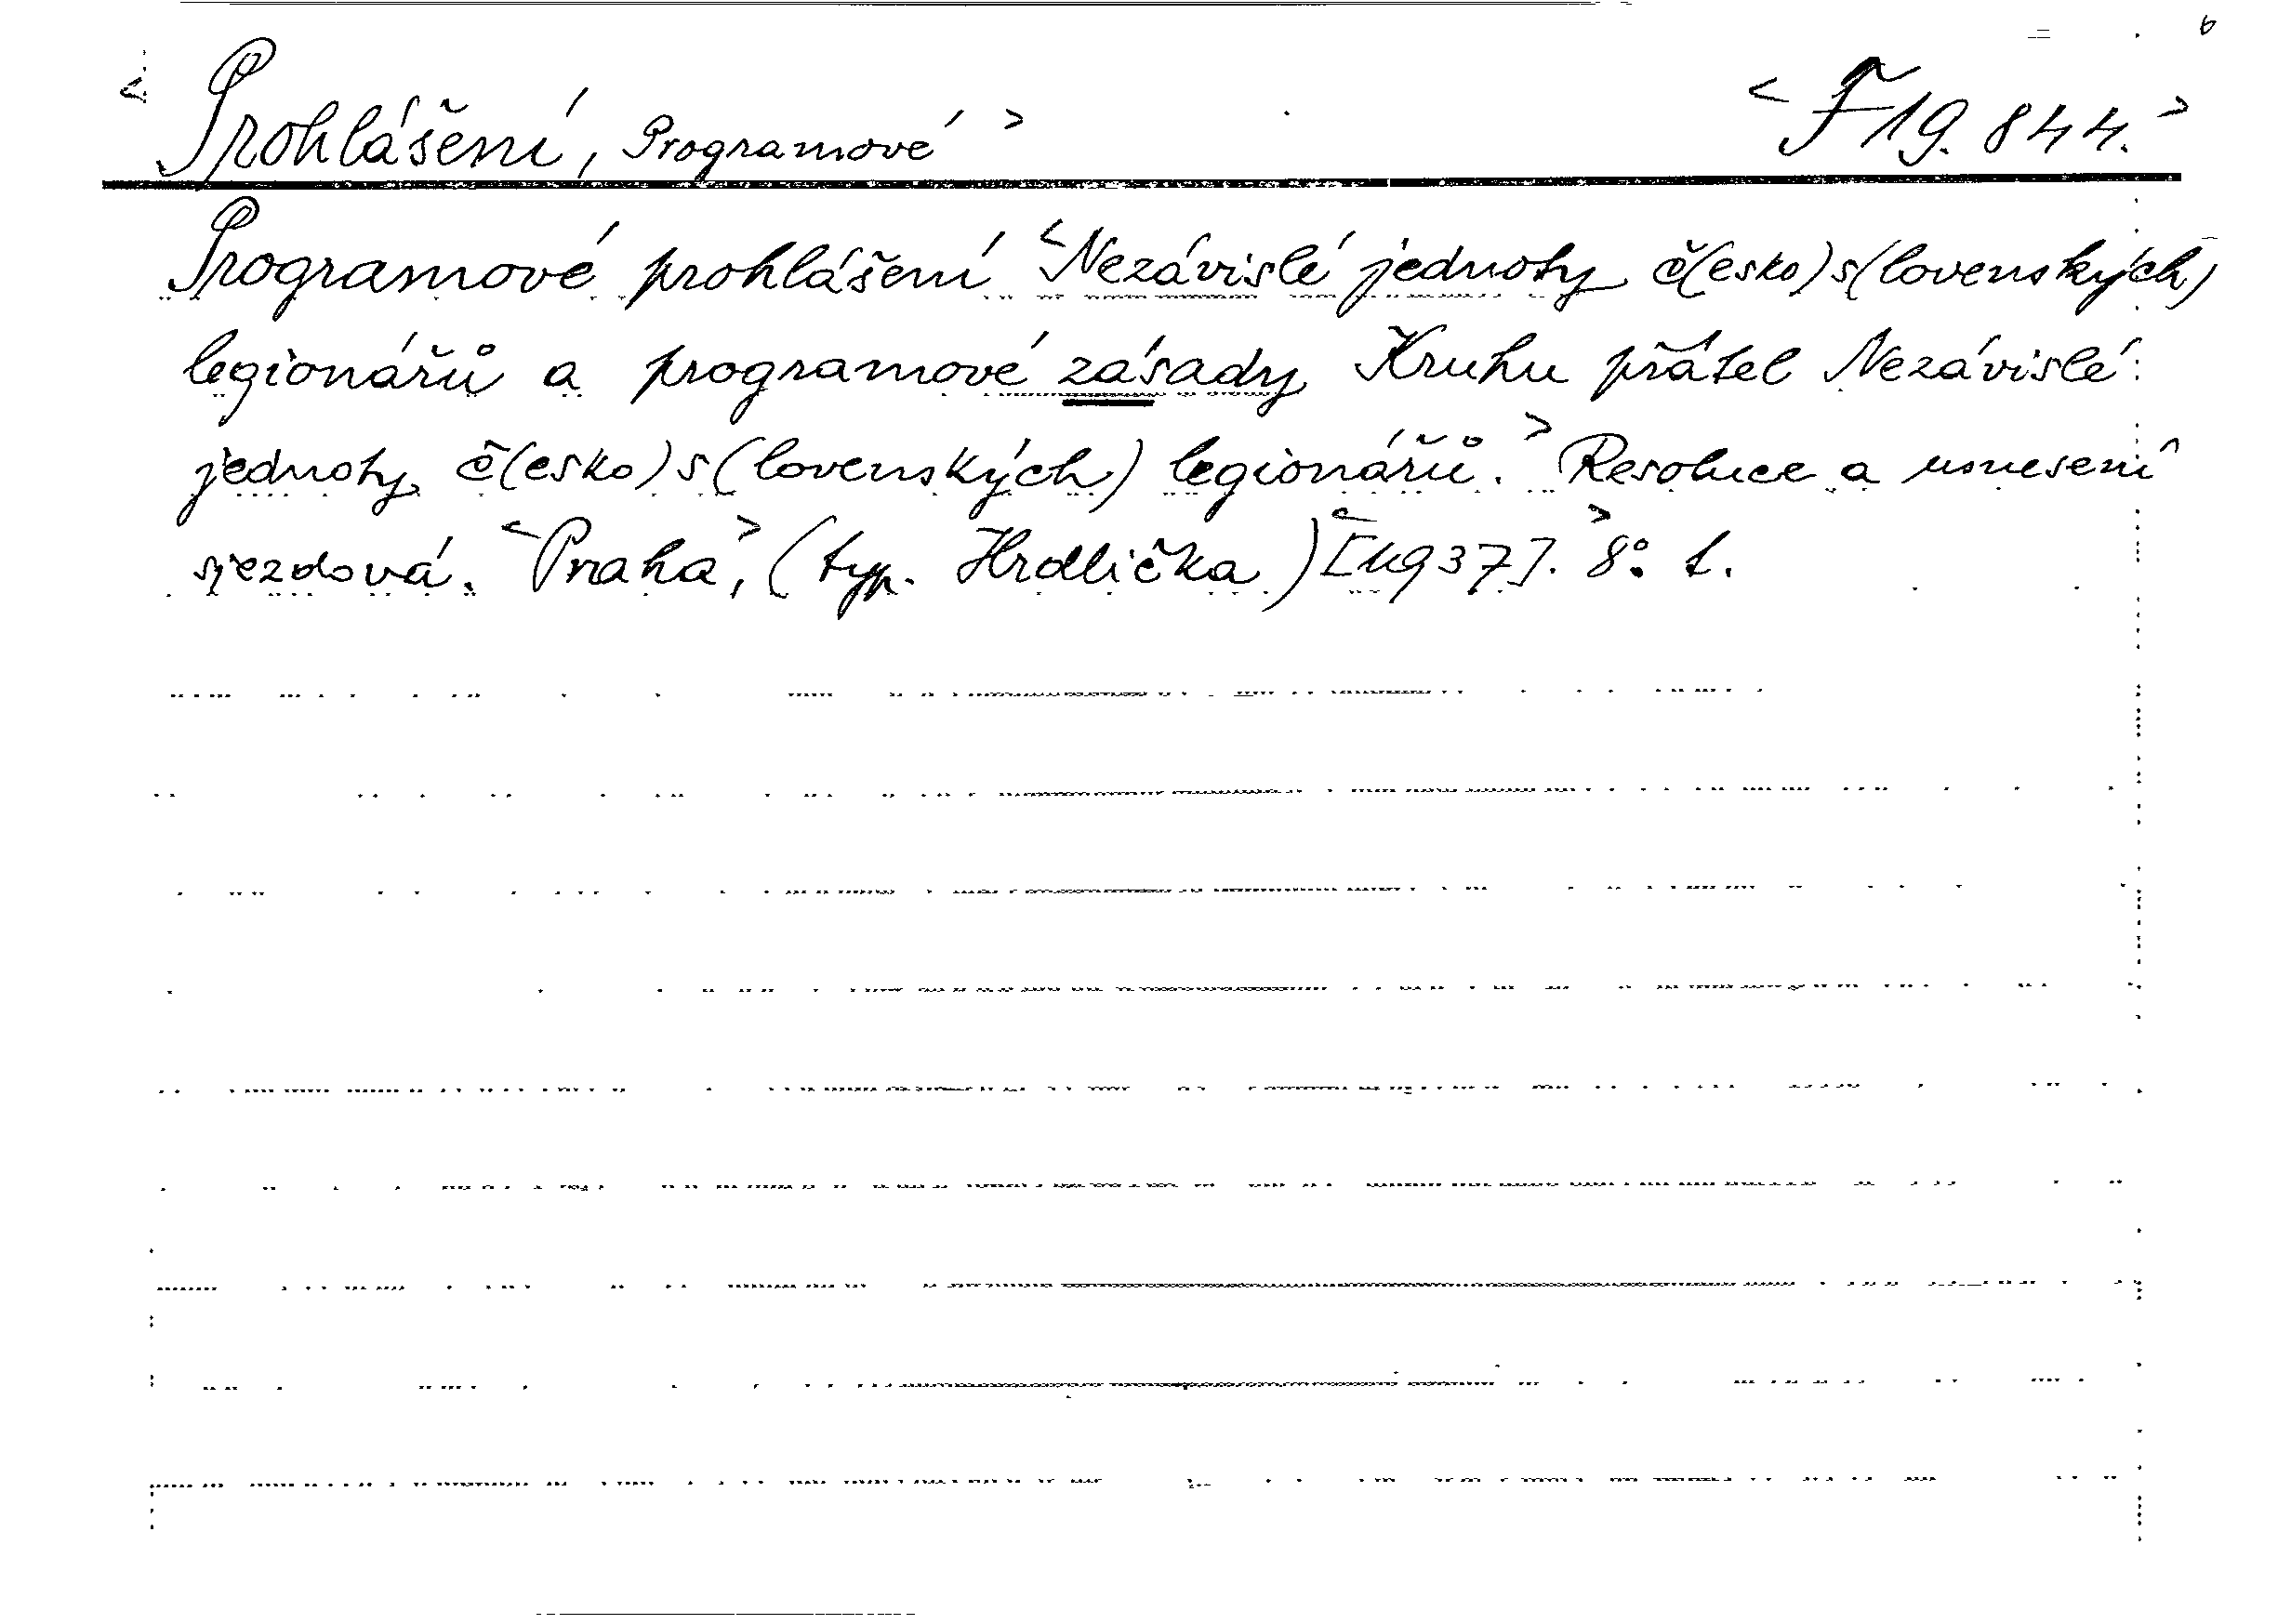 b
<Prohlášení, Programové> <F 19.844.>
Programové prohlášení <Nezávislé jednoty č(esko)s(lovenských)
legionářů a programové zásady Kruhu přátel Nezávislé
jednoty č(esko)s(lovenských) legionářů.> Resoluce a usnesení
sjezdová. <Praha>, (typ. Hrdlička) <[1937].> 8° 1.